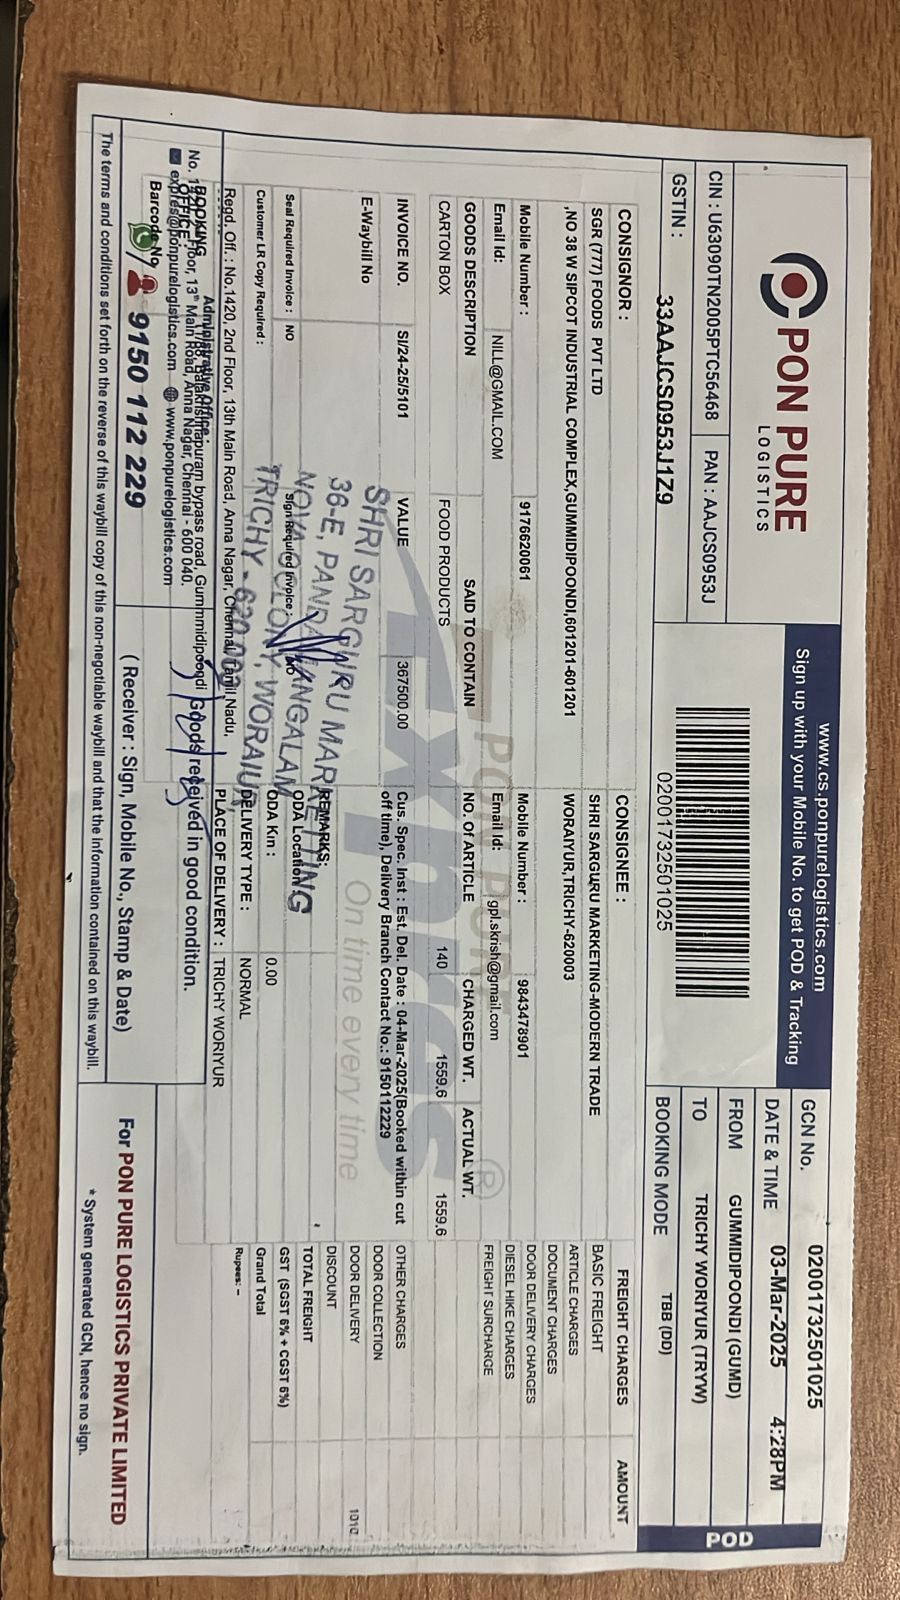 PON PURE
LOGISTICS
CIN : U63090TN2005PTC56468
PAN : AAJCS0953J
GSTIN : 33AAJCS0953J1Z9
www.cs.ponpurelogistics.com
Sign up with your Mobile No. to get POD & Tracking
02001732501025
GCN No. 02001732501025
DATE & TIME 03-Mar-2025 4:28PM
FROM GUMMIDIPOONDI (GUMD)
TO TRICHY WORIYUR (TRYW)
BOOKING MODE TBB (DD)
POD
CONSIGNOR :
SGR (777) FOODS PVT LTD
,NO 38 W SIPCOT INDUSTRIAL COMPLEX,GUMMIDIPOONDI,601201-601201
Mobile Number : 9176620061
Email Id: NILL@GMAIL.COM
CONSIGNEE :
SHRI SARGURU MARKETING-MODERN TRADE
WORAIYUR,TRICHY-620003
Mobile Number : 9843478901
Email Id: gpl.skrish@gmail.com
GOODS DESCRIPTION SAID TO CONTAIN NO. Of ARTICLE CHARGED WT. ACTUAL WT.
CARTON BOX FOOD PRODUCTS 140 1559.6 1559.6
INVOICE NO. SI/24-25/5101 VALUE 367500.00
Cus. Spec. Inst : Est. Del. Date : 04-Mar-2025(Booked within cut
off time), Delivery Branch Contact No.: 9150112229
E-Waybill No
REMARKS:
Seal Required Invoice : NO
Sign Required Invoice : NO
ODA Location :
Customer LR Copy Required :
ODA Km : 0.00
DELIVERY TYPE : NORMAL
PLACE OF DELIVERY : TRICHY WORIYUR
PON PURE
Expres®
On time every time
SHRI SARGURU MARKETTING
36-E, PANDAMANGALAM
NOVA COLONY, WORAIUR,
TRICHY - 620 003
FREIGHT CHARGES AMOUNT
BASIC FREIGHT
ARTICLE CHARGES
DOCUMENT CHARGES
DOOR DELIVERY CHARGES
DIESEL HIKE CHARGES
FREIGHT SURCHARGE
OTHER CHARGES
DOOR COLLECTION
DOOR DELIVERY 1010
DISCOUNT
TOTAL FREIGHT
GST (SGST 6% + CGST 6%)
Grand Total
Rupees: –
Regd. Off. : No.1420, 2nd Floor, 13th Main Road, Anna Nagar, Chennai, Tamil Nadu,
Administrative Office :
BOOKING
OFFICE
Balakrishnapuram bypass road, Gummmidipoondi
Floor, 13th Main Road, Anna Nagar, Chennai - 600 040.
expres@ponpurelogistics.com www.ponpurelogistics.com
Barcode No.
9150 112 229
Goods received in good condition.
( Receiver : Sign, Mobile No., Stamp & Date)
For PON PURE LOGISTICS PRIVATE LIMITED
* System generated GCN, hence no sign.
The terms and conditions set forth on the reverse of this waybill copy of this non-negotiable waybill and that the Information contained on this waybill.